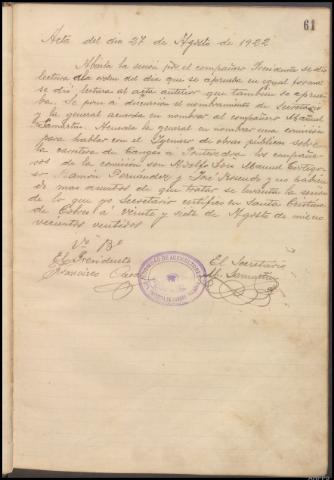 61
Acta del dia 27 de Agosto de 1922
Abierta la sesión por el compañero Presidente se dio
lectura a la orden del dia que se aprueba en igual forma
se dió lectura al acta anterior que tambien se aprue-
ba. Se pone a discusion el nombramiento de Secretario
y la general acuerda en nombrar al compañero Manuel
Samartin. Acuerda la general en nombrar una comisión
para hablar con el Ingeniero de obras públicas sobre
la carretera de Cangas a Pontevedra los compañe-
ros de la comisión son Adolfo José Manuel
Ramón Fernández y José y no habien
do mas asuntos de que tratar se levanta la sesión
de lo que yo Secretario certifico en Santa Cristina
de Cobres a veinte y siete de Agosto de mil no
vecientos veintidos
Vº Bº
El Presidente
Francisco
El Secretario
M. Samartin